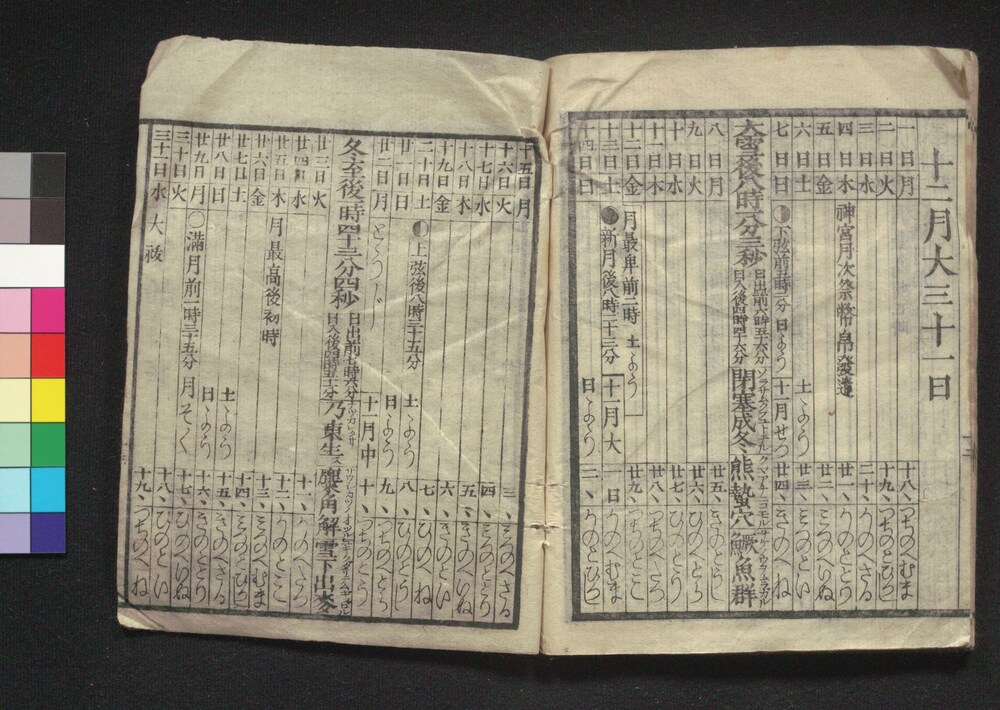 十二月大三十一日
一日月 十八、つちのへむま
二日火 十九、つちのとひつじ
三日水 二十、かのへさる
四日木 神宮月次祭幣帛發遣 廿一、かのととり
五日金 廿二、みつのへいぬ
六日土 土ようり 廿三、みつのとゐ
七日日 下弦前五時二分 日ようり 十一月せつ 廿四、きのへね
大雪後八時一分三秒 日出前六時五十六分 日入後四時四十六分 閉塞成冬 熊蟄穴 鱖魚群
八日月 廿五、きのとうし
九日火 廿六、ひのへとら
十日水 廿七、ひのとう
十一日木 廿八、つちのへたつ
十二日金 月最卑前二時 廿九、つちのとみ
十三日土 新月後八時二十三分 十一月大 一日、かのへむま
十四日日 日ようり 二、かのとひつじ
十五日月 三、みつのへさる
十六日火 四、みつのととり
十七日水 五、きのへいぬ
十八日木 六、きのとゐ
十九日金 七、ひのへね
二十日土 上弦後八時三十五分 土ようり 八、ひのとうし
廿一日日 日ようり 九、つちのへとら
廿二日月 とうじ 十一月中 十、つちのとう
冬至後一時四十三分四秒 日出前七時六分 乃東生 麋角解 雪下出麥
廿三日火 十一、かのへたつ
廿四日水 十二、かのとみ
廿五日木 月最高後初時 十三、みつのへむま
廿六日金 十四、みつのとひつじ
廿七日土 土ようり 十五、きのへさる
廿八日日 日ようり 十六、きのととり
廿九日月 満月前一時三十五分 月そく 十七、ひのへいぬ
三十日火 十八、ひのとゐ
三十一日水 大祓 十九、つちのへね